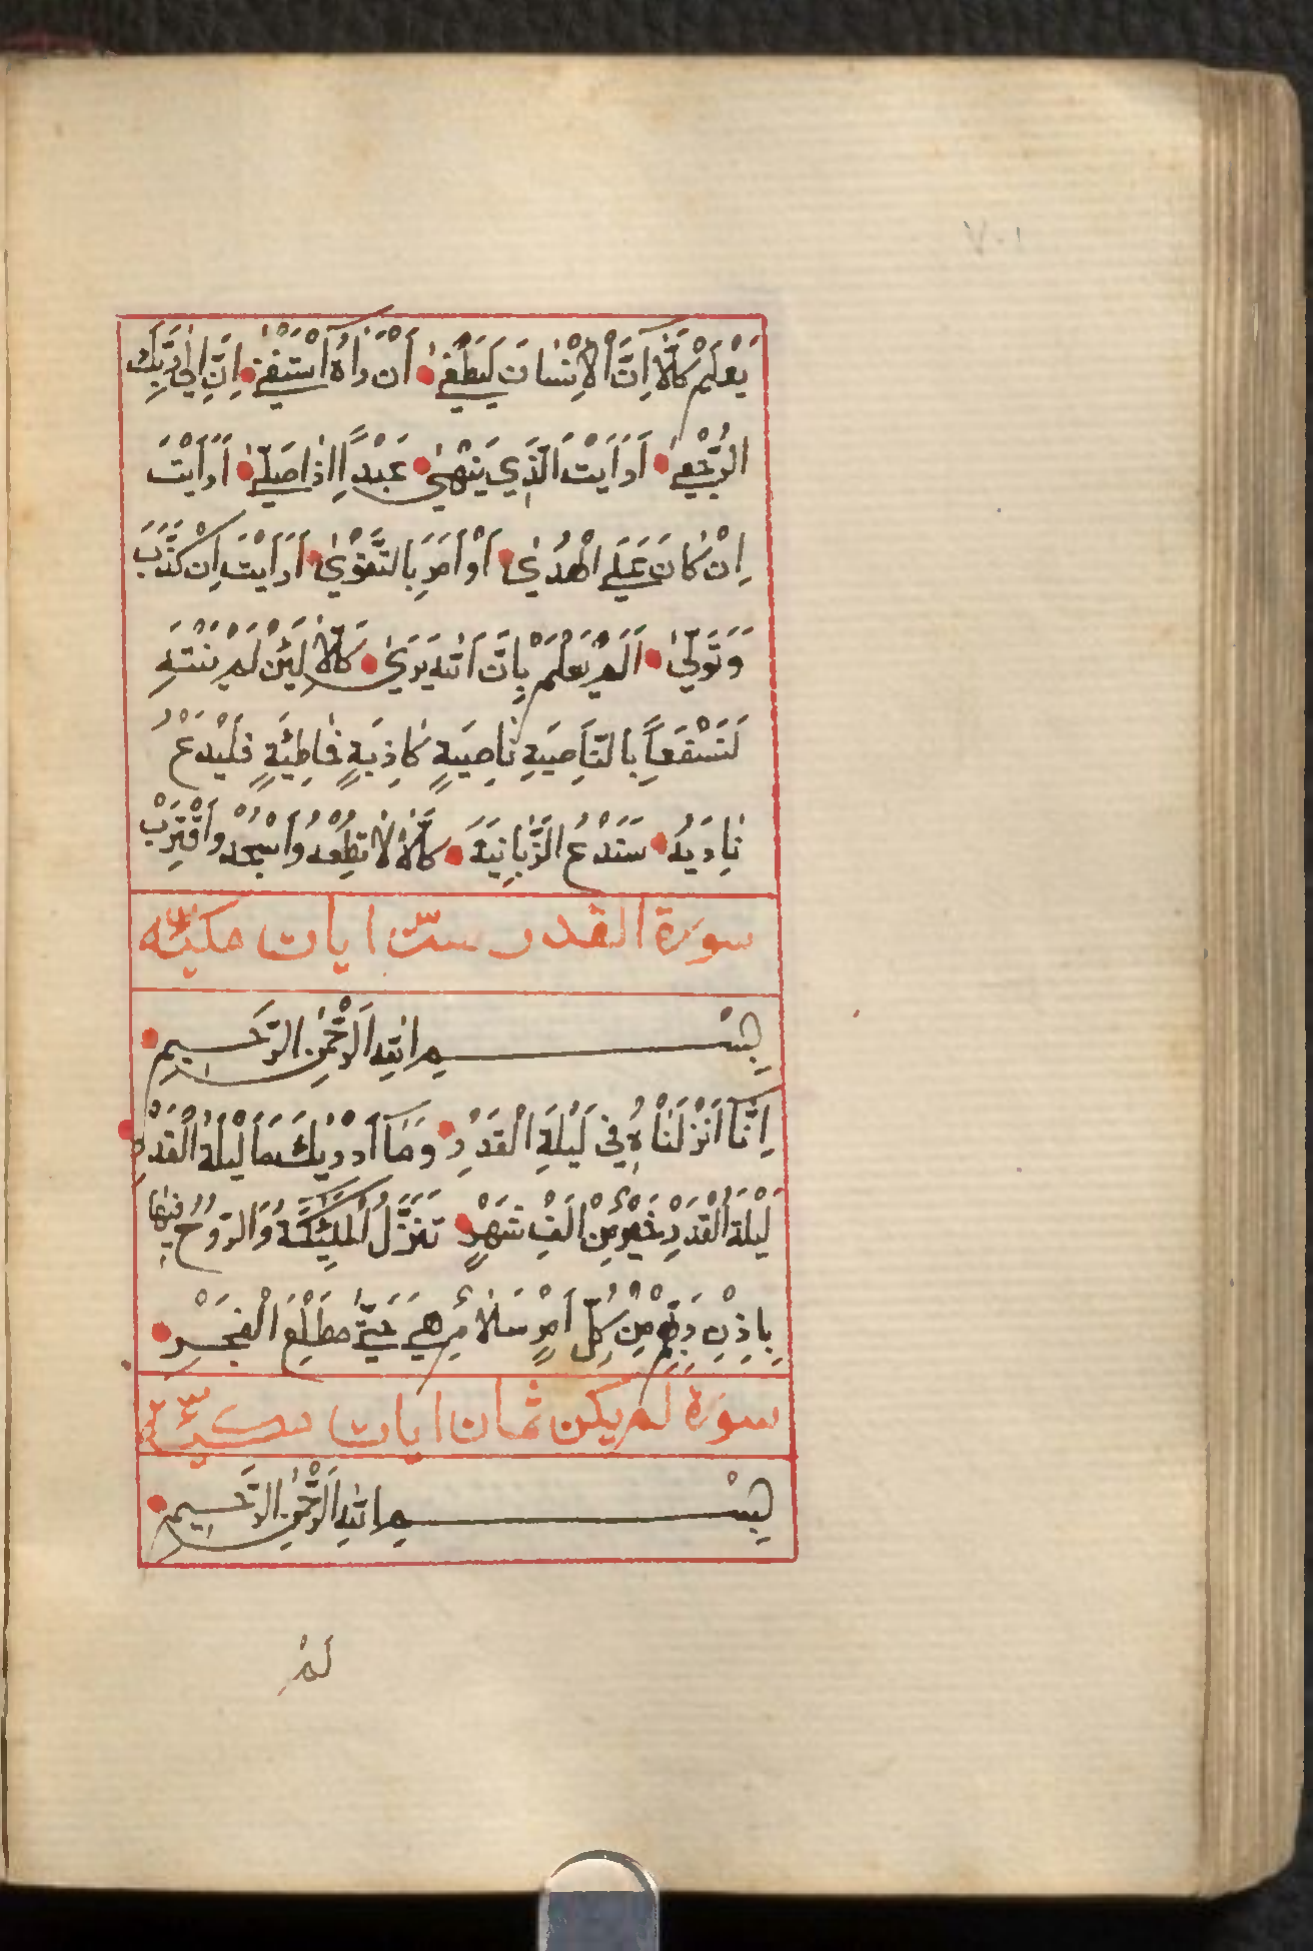 يَعْلَمْ كَلَّا اِنَّ الْاِنْسَانَ لَيَطْغٰى اَنْ رَاٰهُ اسْتَغْنٰى اِنَّ اِلٰى رَبِّكَ
الرُّجْعٰى اَرَاَيْتَ الَّذِي يَنْهٰى عَبْدًا اِذَا صَلّٰى اَرَاَيْتَ
اِنْ كَانَ عَلَى الْهُدٰى اَوْ اَمَرَ بِالتَّقْوٰى اَرَاَيْتَ اِنْ كَذَّبَ
وَتَوَلّٰى اَلَمْ يَعْلَمْ بِاَنَّ اللّٰهَ يَرٰى كَلَّا لَئِنْ لَمْ يَنْتَهِ
لَنَسْفَعًا بِالنَّاصِيَةِ نَاصِيَةٍ كَاذِبَةٍ خَاطِئَةٍ فَلْيَدْعُ
نَادِيَهُ سَنَدْعُ الزَّبَانِيَةَ كَلَّا لَا تُطِعْهُ وَاسْجُدْ وَاقْتَرِبْ
سورة القدر ستّ ايات مكيّه
بِسْم اللّٰهِ الرَّحْمٰنِ الرَّحِيمِ
اِنَّا اَنْزَلْنَاهُ فِي لَيْلَةِ الْقَدْرِ وَمَا اَدْرٰيكَ مَا لَيْلَةُ الْقَدْرِ
لَيْلَةُ الْقَدْرِ خَيْرٌ مِنْ اَلْفِ شَهْرٍ تَنَزَّلُ الْمَلٰئِكَةُ وَالرُّوحُ فِيهَا
بِاِذْنِ رَبِّهِمْ مِنْ كُلِّ اَمْرٍ سَلَامٌ هِيَ حَتّٰى مَطْلَعِ الْفَجْرِ
سورة لم يكن ثمان ايات مكيّة
بِسْم اللّٰهِ الرَّحْمٰنِ الرَّحِيمِ
لَمْ